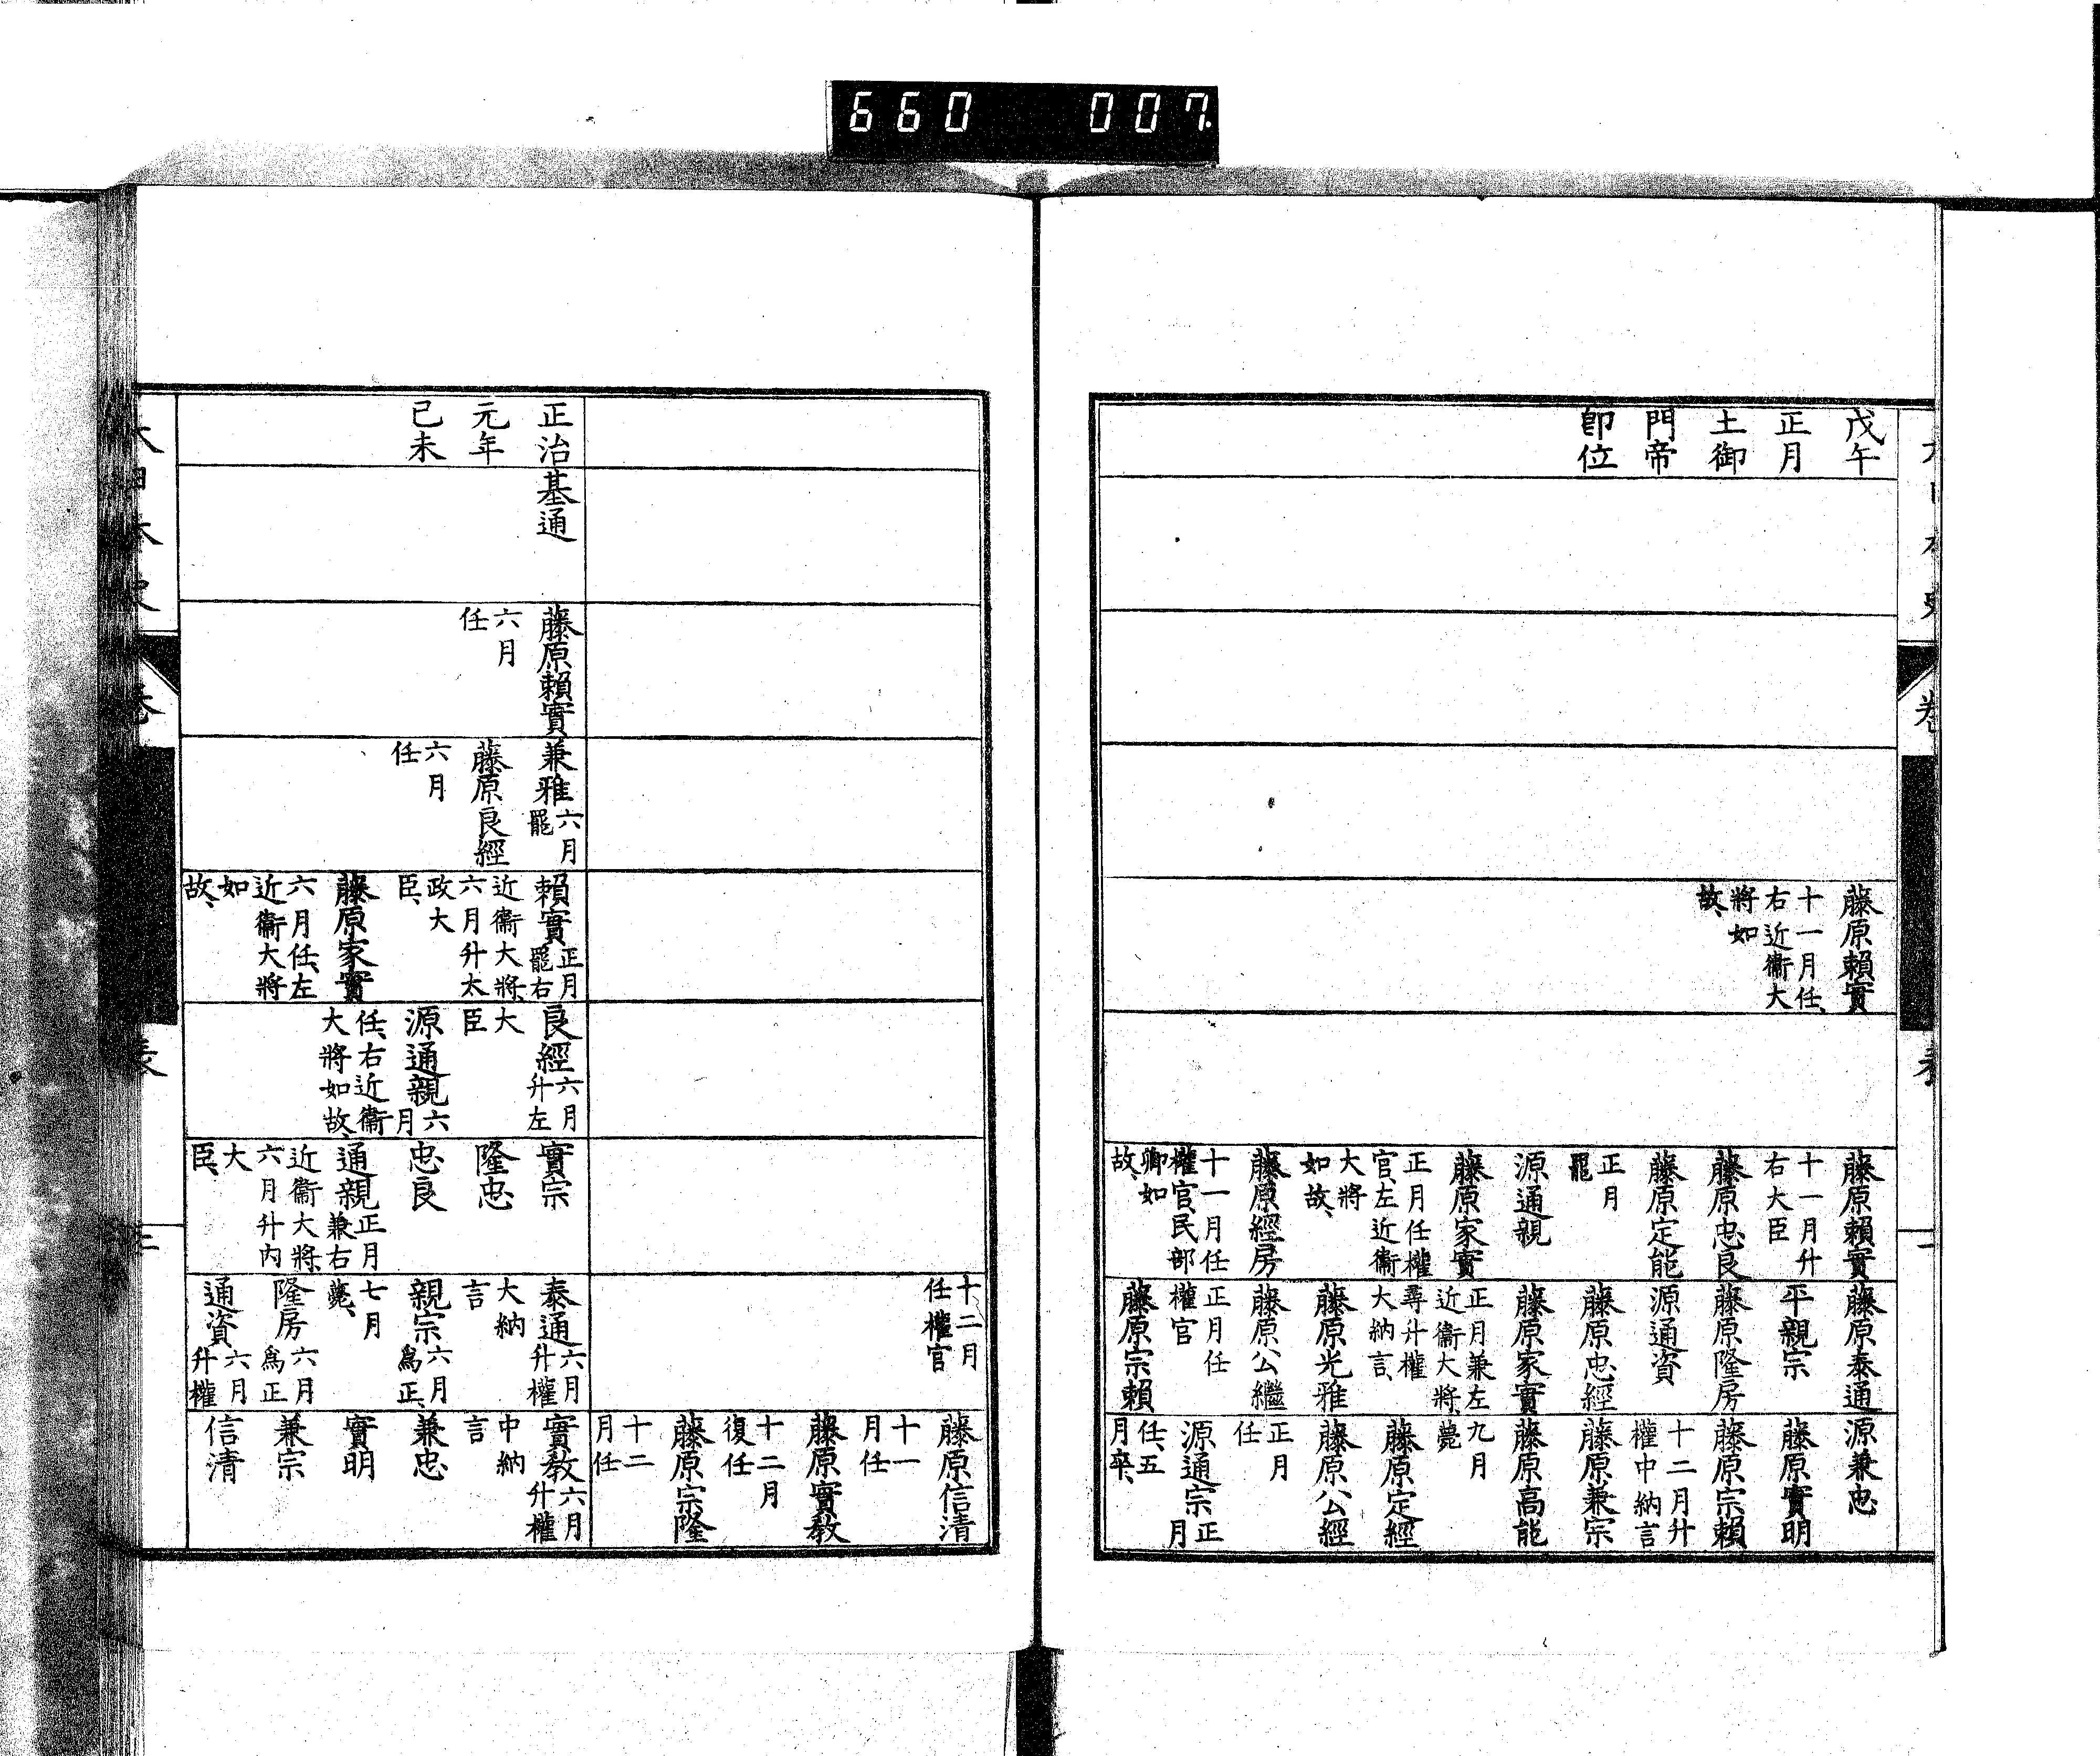 660 007
戊午
正月
土御
門帝
卽位
藤原賴實
十一月任、
右近衞大
將如
故、
藤原賴實
十一月升
右大臣
藤原忠良
藤原定能
正月
罷
源通親
藤原家實
正月任權
官、左近衞
大將
如故、
藤原經房
十一月任
權官、民部
卿如
故、
藤原泰通
平親宗
藤原隆房
源通資
藤原忠經
藤原家實
正月兼左
近衞大將、
尋升權
大納言、
藤原光雅
藤原公繼
正月任
權官
藤原宗賴
源兼忠
藤原實明
藤原宗賴
十二月升
權中納言
藤原兼宗
藤原高能
九月
薨
藤原定經
藤原公經
正月
任
源通宗正月
任、五
月卒、
十二月
任權官
藤原信清
十一
月任
藤原實教
十二月
復任
藤原宗隆
十二
月任
正治
元年
己未
基通
藤原賴實
六月
任
兼雅六月罷
藤原良經
六月
任
賴實正月罷右
近衞大將、
六月升太
政大
臣、
藤原家實
六月任、左
近衞大將
如
故、
良經六月升左
大
臣
源通親六月
任、右近衞
大將如故、
實宗
隆忠
忠良
通親正月兼右
近衞大將、
六月升內
大
臣、
泰通六月升權
大納
言
親宗六月爲正、
七月
薨、
隆房六月爲正
通資六月升權
實教六月升權
中納
言
兼忠
實明
兼宗
信清